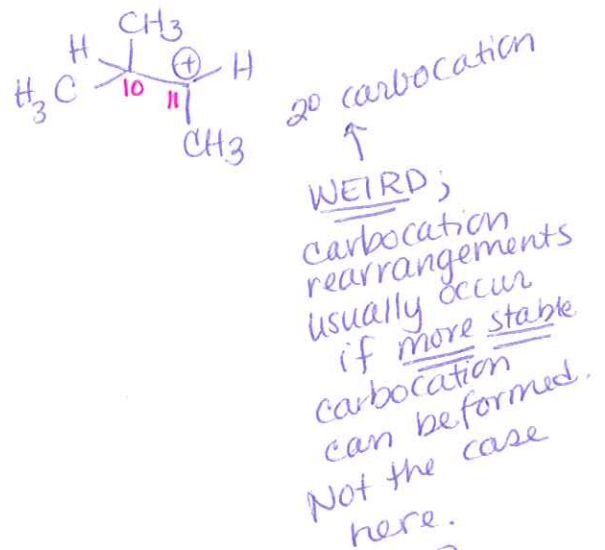 CH3
H
H3C
10
11
+
H
CH3
2° carbocation
WEIRD;
carbocation
rearrangements
usually occur
if more stable
carbocation
can be formed.
Not the case
here.